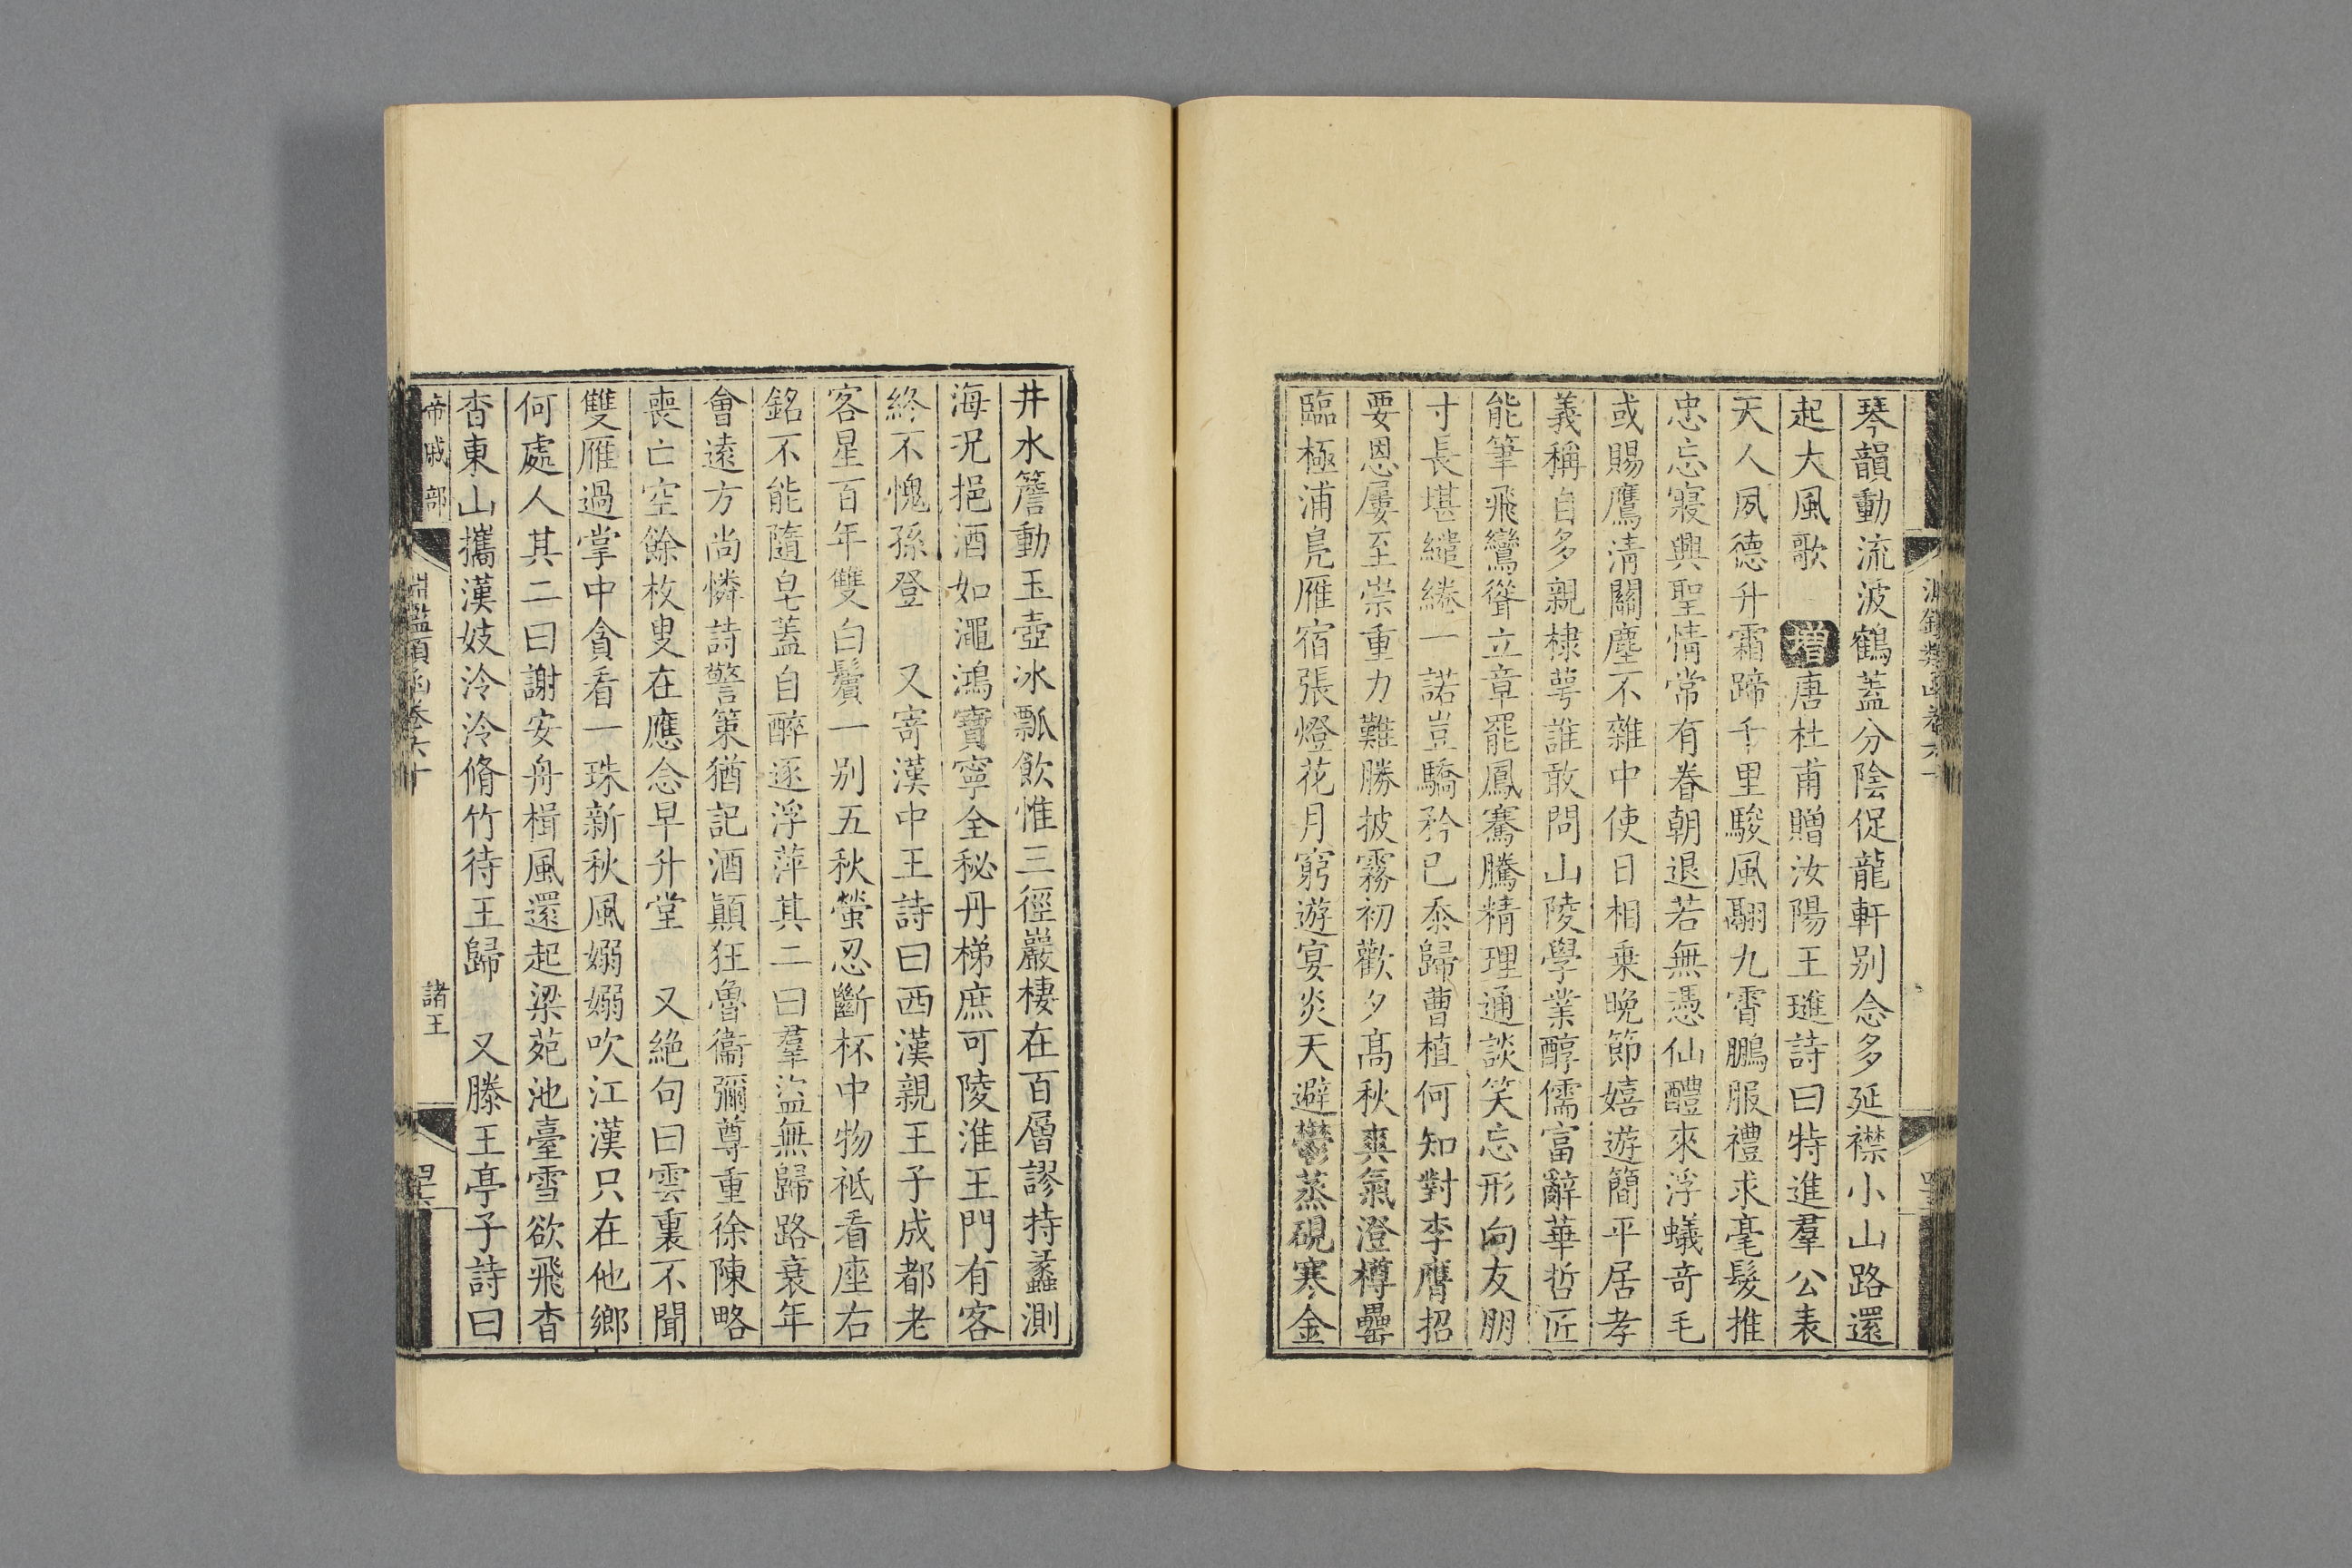 琴韻動流波鶴蓋分陰促龍軒别念多延襟小山路還
起大風歌 增唐杜甫贈汝陽王璡詩曰特進羣公表
天人夙德升霜蹄千里駿風翮九霄鵬服禮求毫髮推
忠忘寢興聖情常有眷朝退若無憑仙醴來浮蟻奇毛
或賜鷹清關塵不雜中使日相乗晚節嬉遊簡平居孝
義稱自多親棣萼誰敢問山陵學業醇儒富辭華哲匠
能筆飛鸞聳立章罷鳳騫騰精理通談笑忘形向友朋
寸長堪繾綣一諾豈驕矜已忝歸曹植何知對李膺招
要恩屢至崇重力難勝披霧初歡夕髙秋爽氣澄樽罍
臨極浦鳬雁宿張燈花月窮遊宴炎天避鬱蒸硯寒金
井水簷動玉壺冰瓢飲惟三徑巖棲在百層謬持蠡測
海況挹酒如澠鴻寶寧全秘丹梯庶可陵淮王門有客
終不愧孫登 又寄漢中王詩曰西漢親王子成都老
客星百年雙白鬢一别五秋螢忍斷杯中物祗看座右
銘不能隨皂蓋自醉逐浮萍其二曰羣盜無歸路衰年
會遠方尚憐詩警策猶記酒顛狂魯衞彌尊重徐陳略
喪亡空餘枚叟在應念早升堂 又絶句曰雲裏不聞
雙雁過掌中貪看一珠新秋風嫋嫋吹江漢只在他鄉
何處人其二曰謝安舟楫風還起梁苑池臺雪欲飛杳
杳東山攜漢妓泠泠脩竹待王歸 又滕王亭子詩曰
帝戚部
淵鑑類函卷六十
諸王